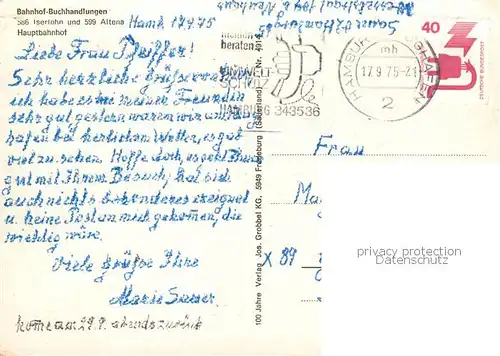 Bahnhof-Buchhandlungen
586 Iserlohn und 599 Altena
Hauptbahnhof
Hamb. 17.9.75
Liebe Frau Pfeiffer!
Sehr herzliche Grüße von
ich habe es bei meiner Freundin
sehr gut gestern waren wir am Hafen
hafen bei herlichem Wetter, es gab
viel zu sehen. Hoffe doch, es geht Ihnen
gut mit Ihrem Besuch, hat sich
auch nichts besonderes ereignet
u. keine Post an mich gekommen, die
wichtig wäre.
Viele Grüße Ihre
Marie Sauer
komme am 29.9. abends zurück
beraten
UMWELT-
SCHUTZ
HAMBURG 343536
HAMBURG
mh
17.9.75-21
2
40
DEUTSCHE BUNDESPOST
100 Jahre Verlag Jos. Grobbel KG, 5949 Fredeburg (Sauerland)
Frau
X 89
privacy protection
Datenschutz